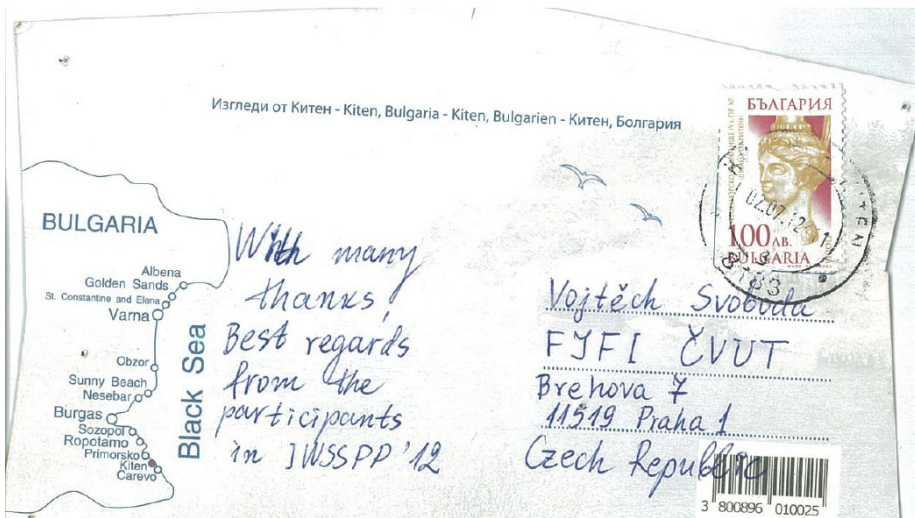 Изгледи от Китен - Kiten, Bulgaria - Kiten, Bulgarien - Китен, Болгария
БЪЛГАРИЯ
1.00 ЛВ.
BULGARIA
02.07.12
8183
BULGARIA
Albena
Golden Sands
St. Constantine and Elena
Varna
Obzor
Sunny Beach
Nesebar
Burgas
Sozopol
Ropotamo
Primorsko
Kiten
Carevo
Black Sea
With many
thanks!
Best regards
from the
participants
in IWSSPP '12
Vojtěch Svoboda
FJFI ČVUT
Brehova 7
11519 Praha 1
Czech Republic
3 800896 010025